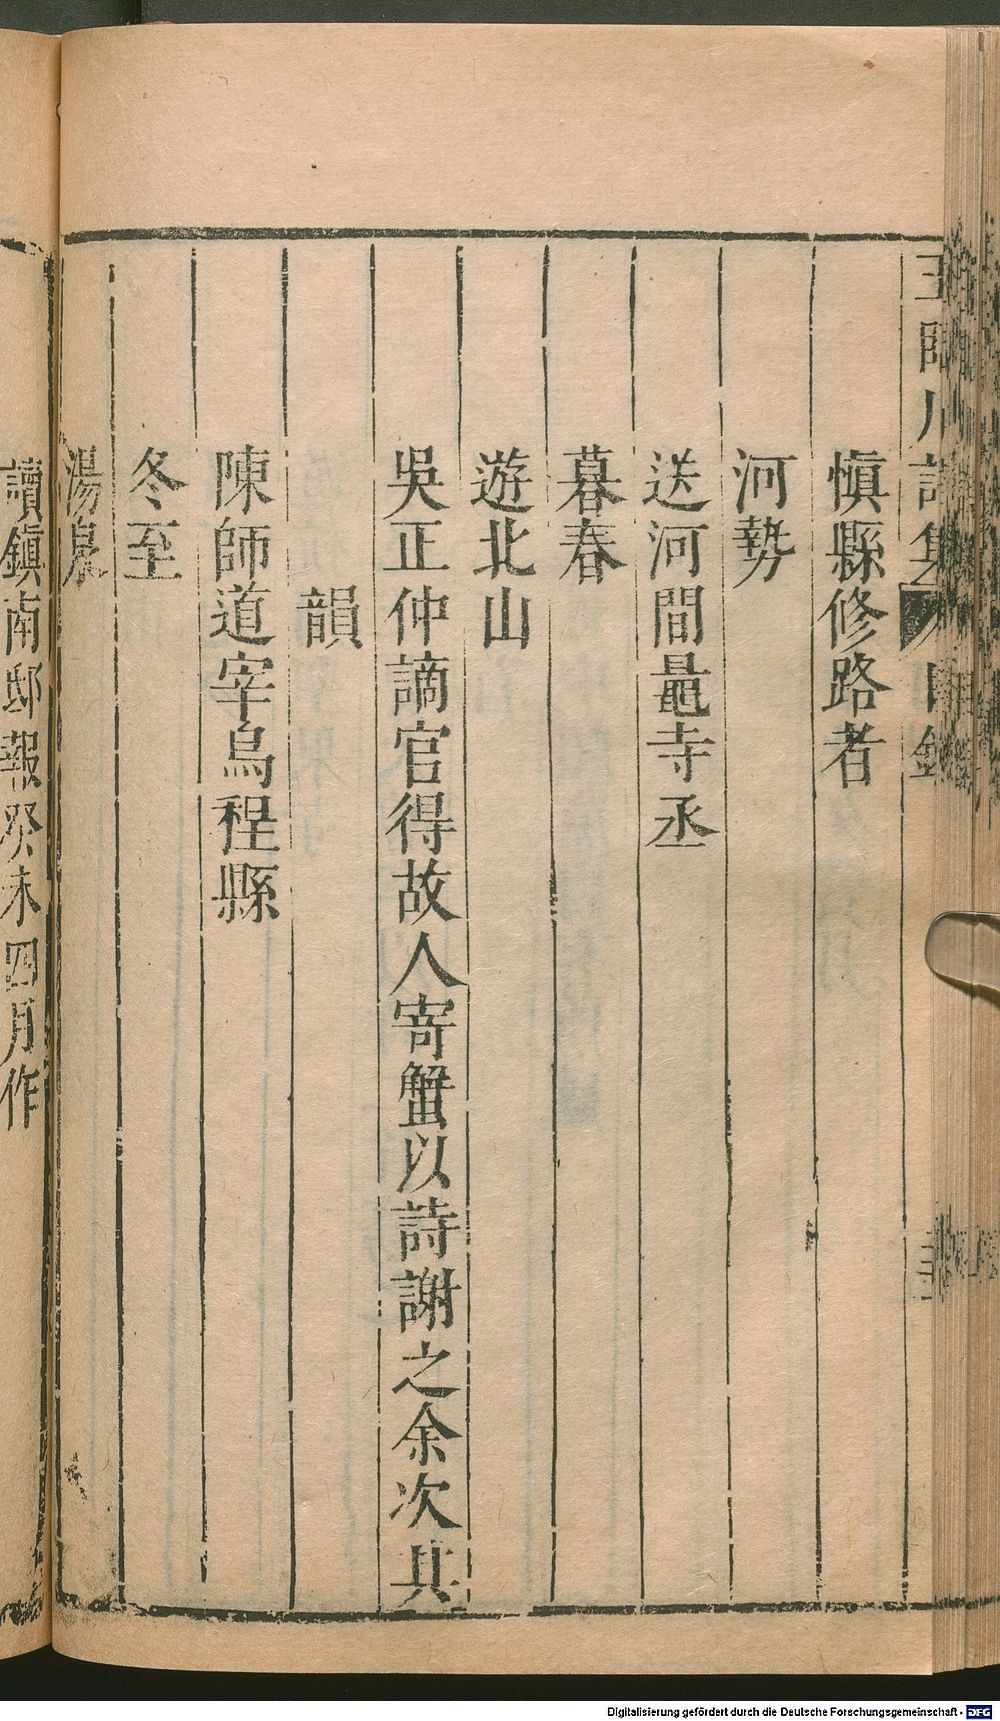 愼縣修路者
河勢
送河間鼂寺丞
暮春
遊北山
吳正仲謫官得故人寄蟹以詩謝之余次其
韻
陳師道宰烏程縣
冬至
湯泉
讀鎭南邸報癸未四月作
Digitalisierung gefördert durch die Deutsche Forschungsgemeinschaft - DFG